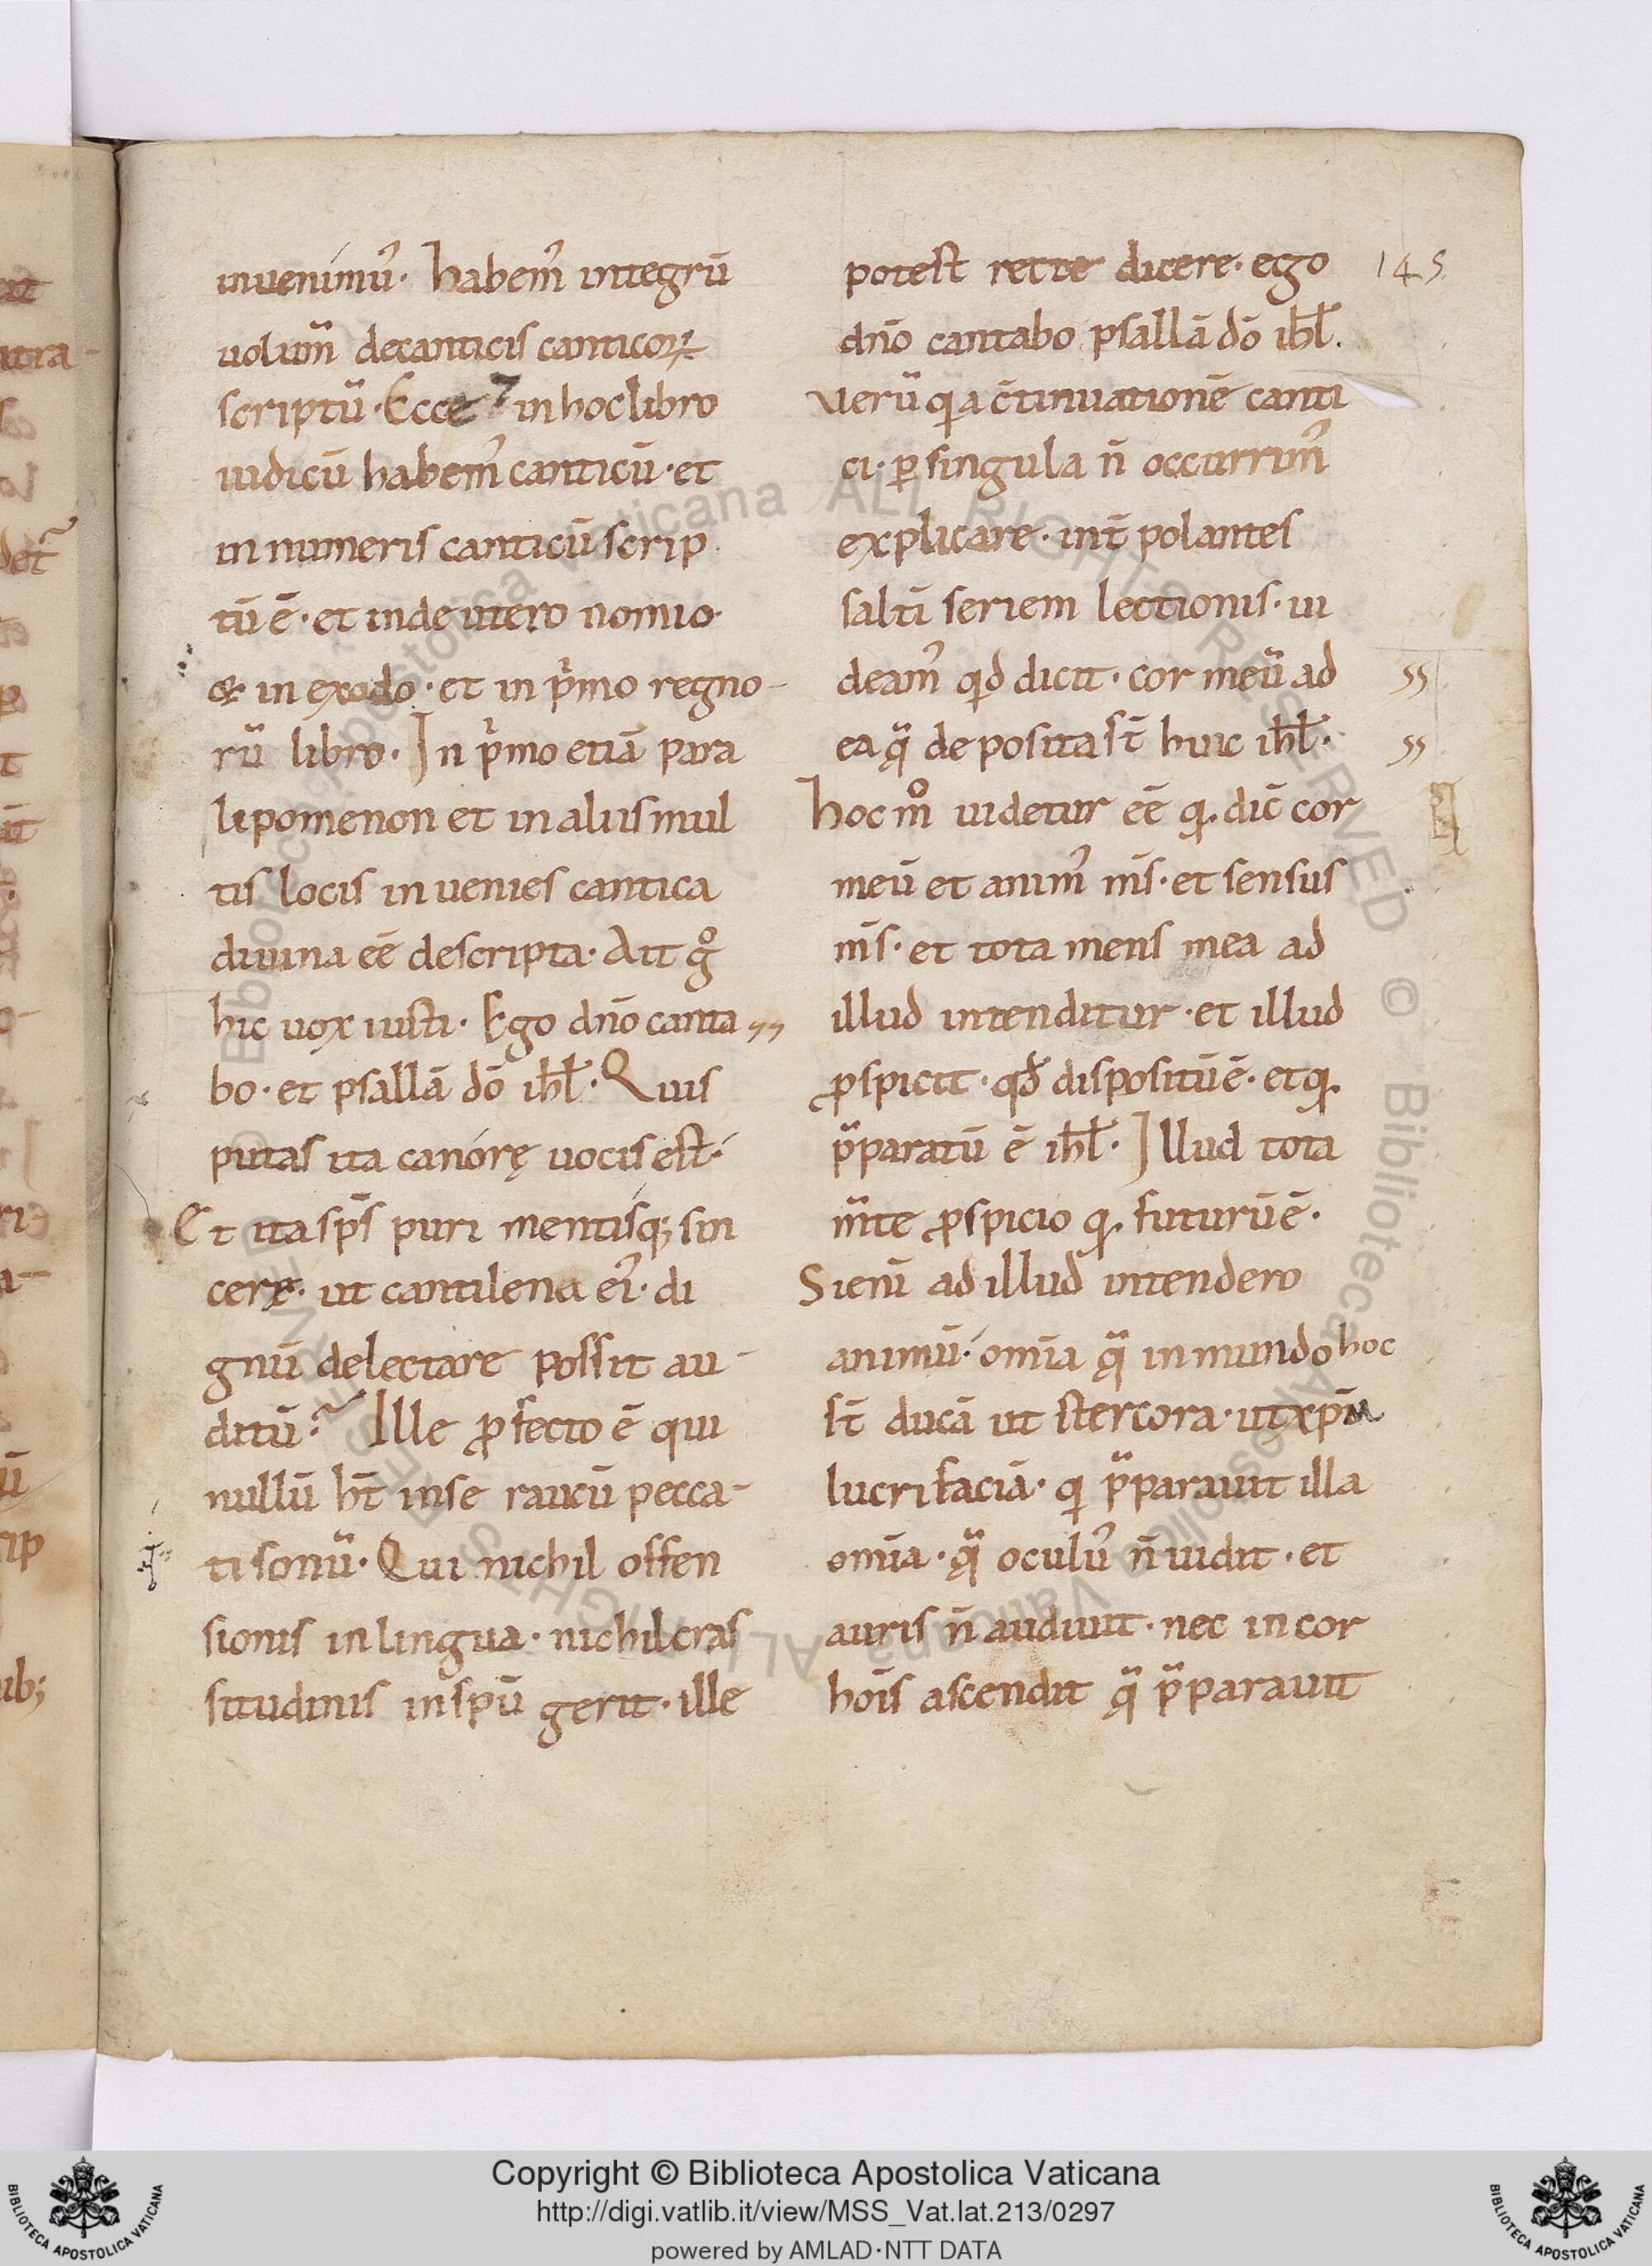 inuenimꝰ· habemꝰ integrū
uolum̄ decanticis canticoꝝ
scriptū· Ecce ⁊ in hoc libro
iudicū habemꝰ canticū· et
in numeris canticū scrip
tū ē· et in deutero nomio·
& in exodo· et in p̍mo regno-
rū libro· In p̍mo etiā para
lipomenon et in aliis mul
tis locis in uenies cantica
diuina eē descripta· Ait gͦ
hic uox iusti· Ego dn̄o canta
bo· et psallā dō ihł· Quis
putas ita canórę uocis est·
Et ita sp̄s puri mentisq; sin
cerę· ut cantilena eiꝰ· di
gnū delectare possit au-
ditū? Ille ꝓfecto ē qui
nullū ht̄ inse raucū pecca-
ti sonū· Qui nichil offen
sionis in lingua· nichil cras
situdinis in spū gerit· ille
potest recte dicere· ego
dn̄o cantabo psallā dō ihł.
Verū q̨ a c̄tinuationē canti
ci· ꝑ singula n̄ occurrimꝰ
explicare· int̄ polantes
saltī seriem lectionis· ui
deamꝰ qd dicit· cor meū ad
ea q̄ de posita st̄ huic ihł·
hoc mͦ uidetur eē q. dic̄ cor
meū et animꝰ m̄s· et sensus
m̄s· et tota mens mea ad
illud intenditur· et illud
ꝓspicit· qđ dispositū ē· et q.
p̄paratū ē ihł· Illud tota
m̄te ꝓspicio q. futurū ē·
Si enī ad illud intendero
animū· omīa q̄ in mundo hoc
st̄ ducā ut stercora· ut xp̄m
lucrifaciā· q p̄parauit illa
omīa· q̄ oculꝰ n̄ uidit· et
auris n̄ audiuit· nec in cor
hoīs ascendit q̄ p̄parauit
145
© Biblioteca Apostolica Vaticana ALL RIGHTS RESERVED © Biblioteca Apostolica Vaticana ALL RIGHTS RESERVED
Copyright © Biblioteca Apostolica Vaticana
http://digi.vatlib.it/view/MSS_Vat.lat.213/0297
powered by AMLAD·NTT DATA
BIBLIOTECA APOSTOLICA VATICANA
BIBLIOTECA APOSTOLICA VATICANA